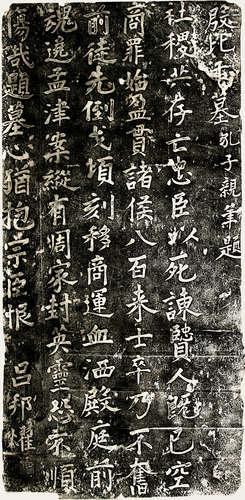 殷比干墓 孔子親筆題
社稷共存亡忠臣以死諫賢人既已空
商罪始盈貫諸侯八百来士卒乃不奮
前徒先倒戈頃刻移商運血洒殿庭前
魂遶孟津案縱有周家封英靈恐未順
傷哉題墓心猶抱宗臣恨 呂邦耀